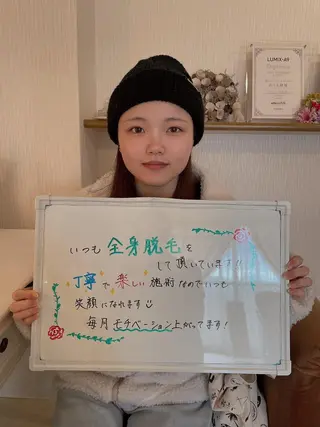 LUMIX-A9
いつも 全身脱毛を
して頂いています!!
丁寧で楽しい施術なのでいつも
笑顔になれます
毎月モチベーション上がってます!